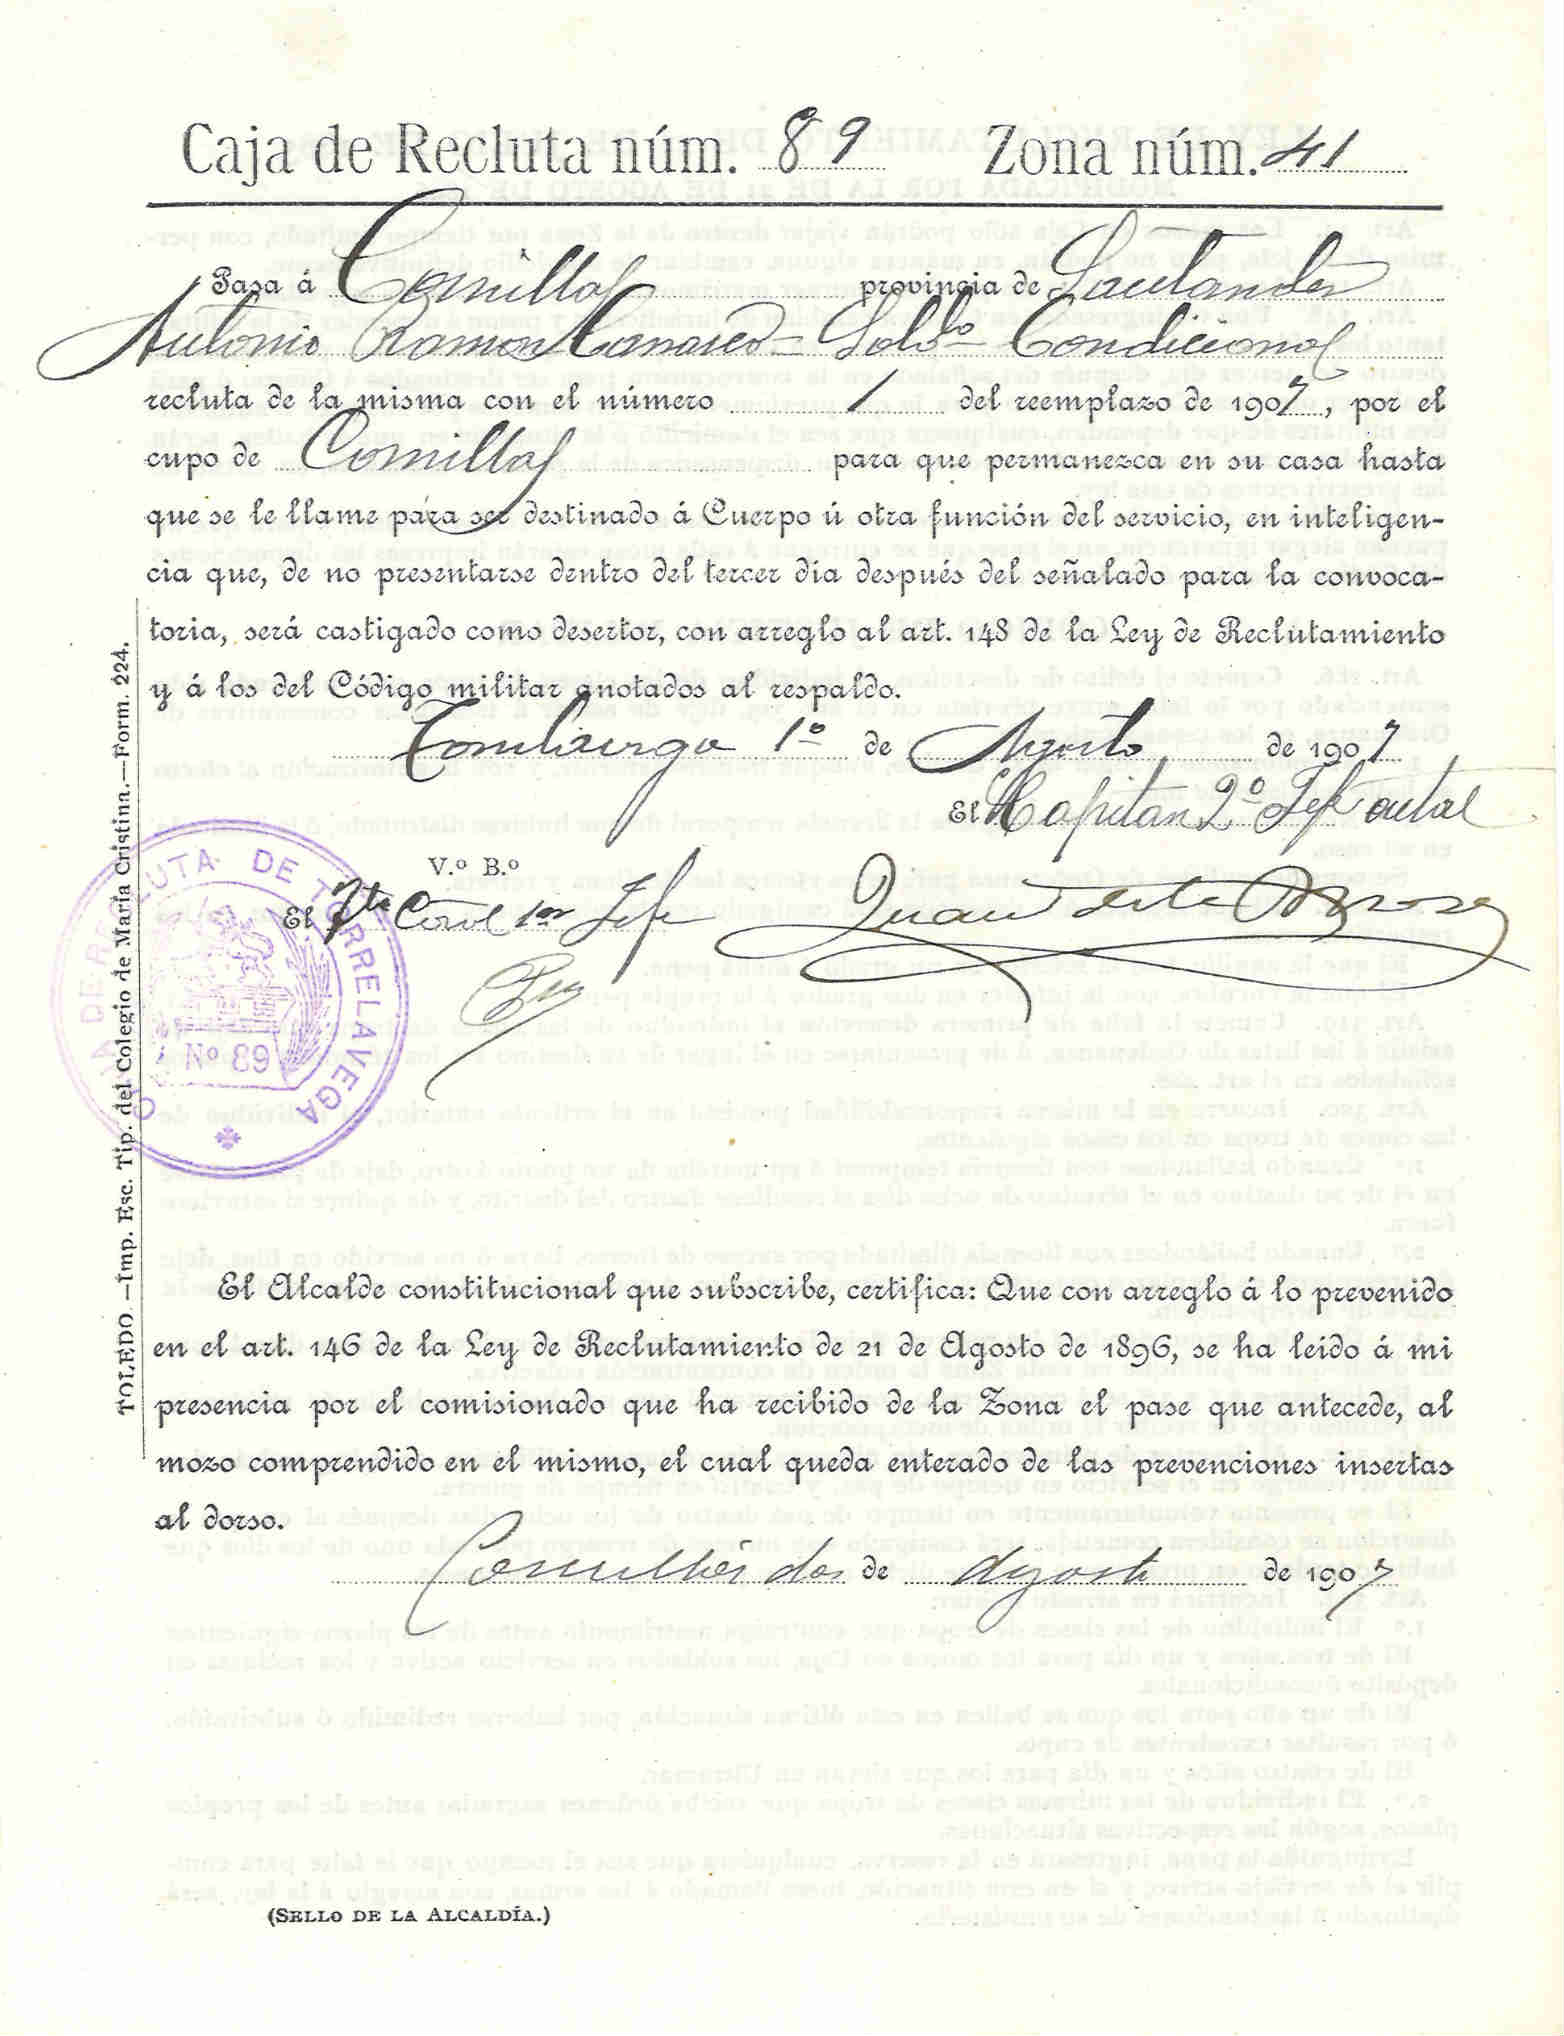 Caja de Recluta núm. 89 Zona núm. 41
Pasa á Comillas provincia de Santander
Antonio Ramon Sold.º Condicional
recluta de la misma con el número 1 del reemplazo de 1907, por el
cupo de Comillas para que permanezca en su casa hasta
que se le llame para ser destinado á Cuerpo ú otra función del servicio, en inteligen-
cia que, de no presentarse dentro del tercer día después del señalado para la convoca-
toria, será castigado como desertor, con arreglo al art. 148 de la Ley de Reclutamiento
y á los del Código militar anotados al respaldo.
1º de Agosto de 1907
El Capitan 2º Jefe
V.º B.º
El Jefe
Juan
CAJA DE RECLUTA DE TORRELAVEGA
Nº 89
TOLEDO.—Imp. Esc. Tip. del Colegio de María Cristina.—Form. 224.
El Alcalde constitucional que subscribe, certifica: Que con arreglo á lo prevenido
en el art. 146 de la Ley de Reclutamiento de 21 de Agosto de 1896, se ha leído á mi
presencia por el comisionado que ha recibido de la Zona el pase que antecede, al
mozo comprendido en el mismo, el cual queda enterado de las prevenciones insertas
al dorso.
Comillas dos de Agosto de 1907
(SELLO DE LA ALCALDÍA.)